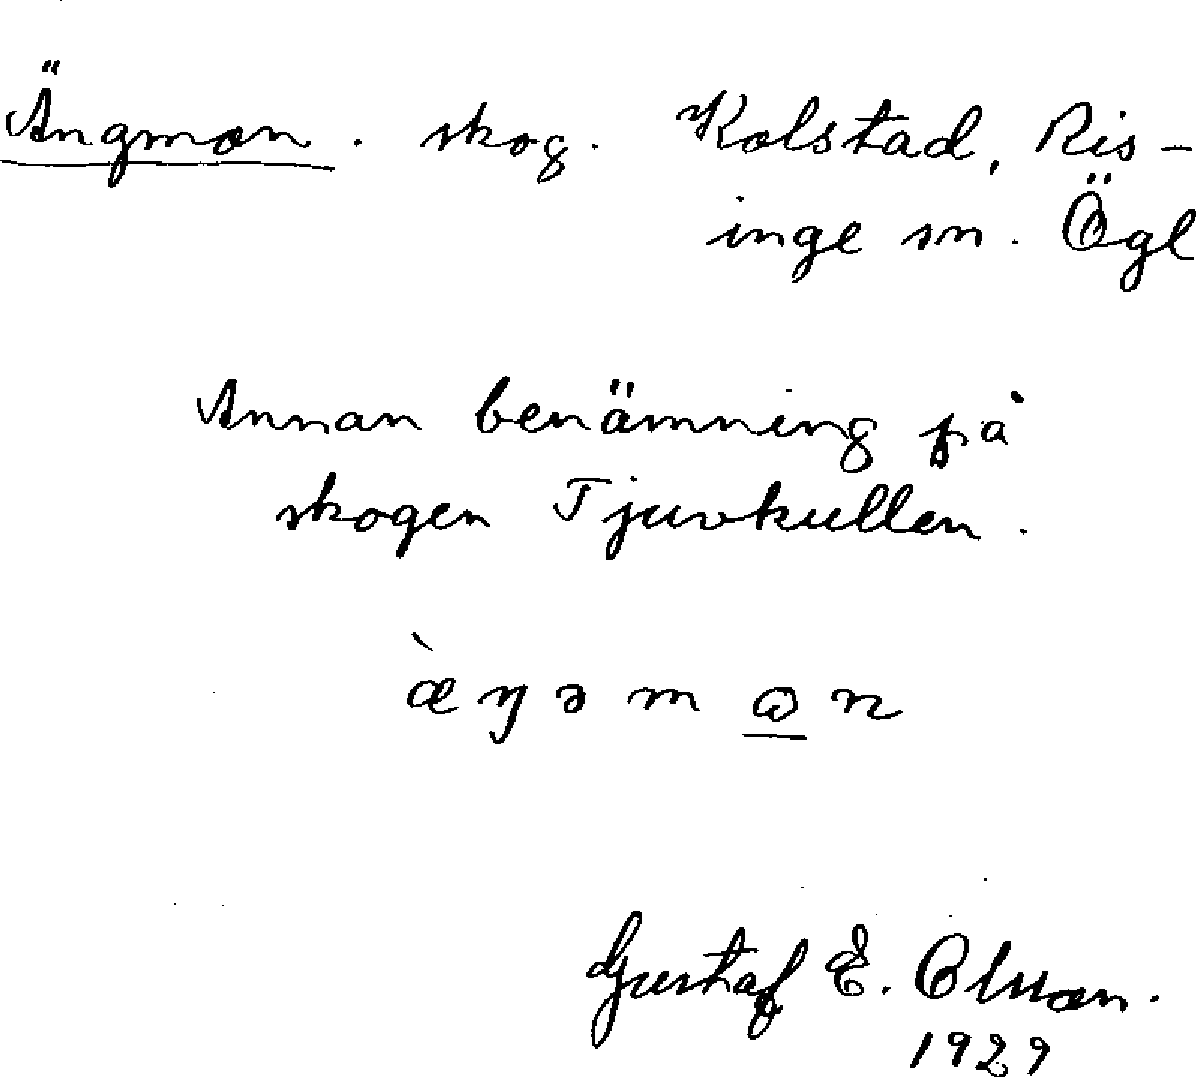 Ängmon. skog. Kolstad, Ris-
inge sn. Ögl
Annan benämning på
skogen Tjuvkullen.
æ̀ŋəmɷ̲n
Gustaf E. Olsson.
1929